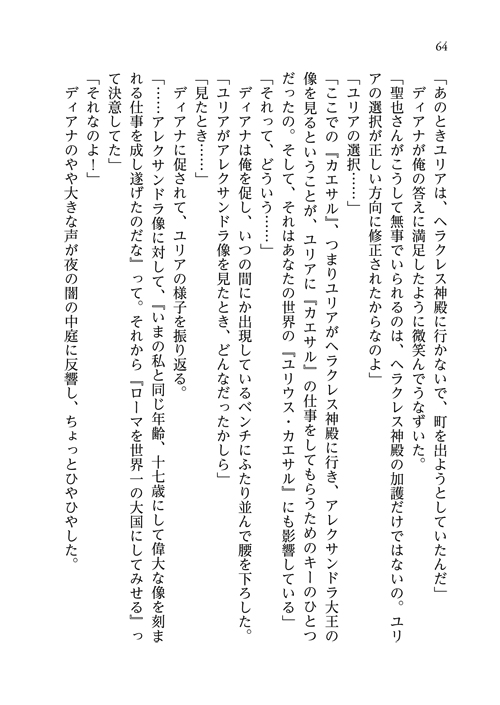 64
「あのときユリアは、ヘラクレス神殿に行かないで、町を出ようとしていたんだ」
ディアナが俺の答えに満足したように微笑んでうなずいた。
「聖也さんがこうして無事でいられるのは、ヘラクレス神殿の加護だけではないの。ユリ
アの選択が正しい方向に修正されたからなのよ」
「ユリアの選択……」
「ここでの『カエサル』、つまりユリアがヘラクレス神殿に行き、アレクサンドラ大王の
像を見るということが、ユリアに『カエサル』の仕事をしてもらうためのキーのひとつ
だったの。そして、それはあなたの世界の『ユリウス・カエサル』にも影響している」
「それって、どういう……」
ディアナは俺を促し、いつの間にか出現しているベンチにふたり並んで腰を下ろした。
「ユリアがアレクサンドラ像を見たとき、どんなだったかしら」
「見たとき……」
ディアナに促されて、ユリアの様子を振り返る。
「……アレクサンドラ像に対して、『いまの私と同じ年齢、十七歳にして偉大な像を刻ま
れる仕事を成し遂げたのだな』って。それから『ローマを世界一の大国にしてみせる』っ
て決意してた」
「それなのよ！」
ディアナのやや大きな声が夜の闇の中庭に反響し、ちょっとひやひやした。